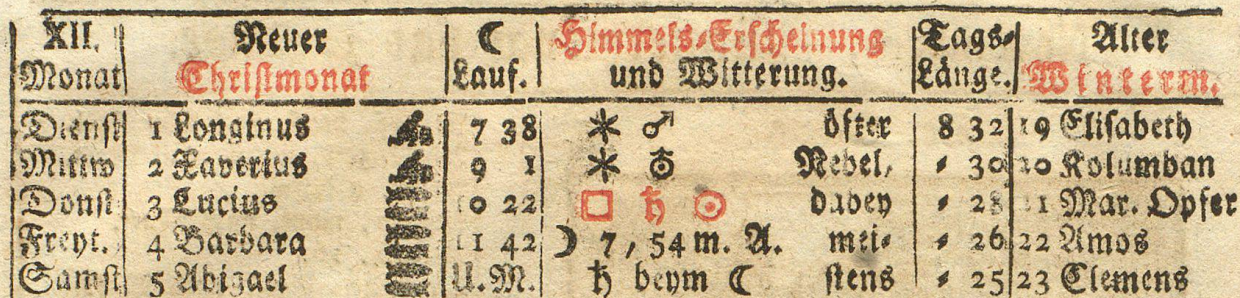 XII. Neuer ☾ Himmels-Erscheinung Tags- Alter
Monat Christmonat Lauf. und Witterung. Länge. Winterm.
Dienst 1 Longinus 7 38 ⚹ ♂ öfter 8 32 19 Elisabeth
Mittw 2 Xaverius 9 1 ⚹ ♁ Nebel, 30 20 Kolumban
Donst 3 Lucius 10 22 □ ♄ ☉ dabey 28 21 Mar. Opfer
Freyt. 4 Barbara 11 42 ☽ 7, 54 m. A. mei- 26 22 Amos
Samst 5 Abigael U.M. ♄ beym ☾ stens 25 23 Clemens